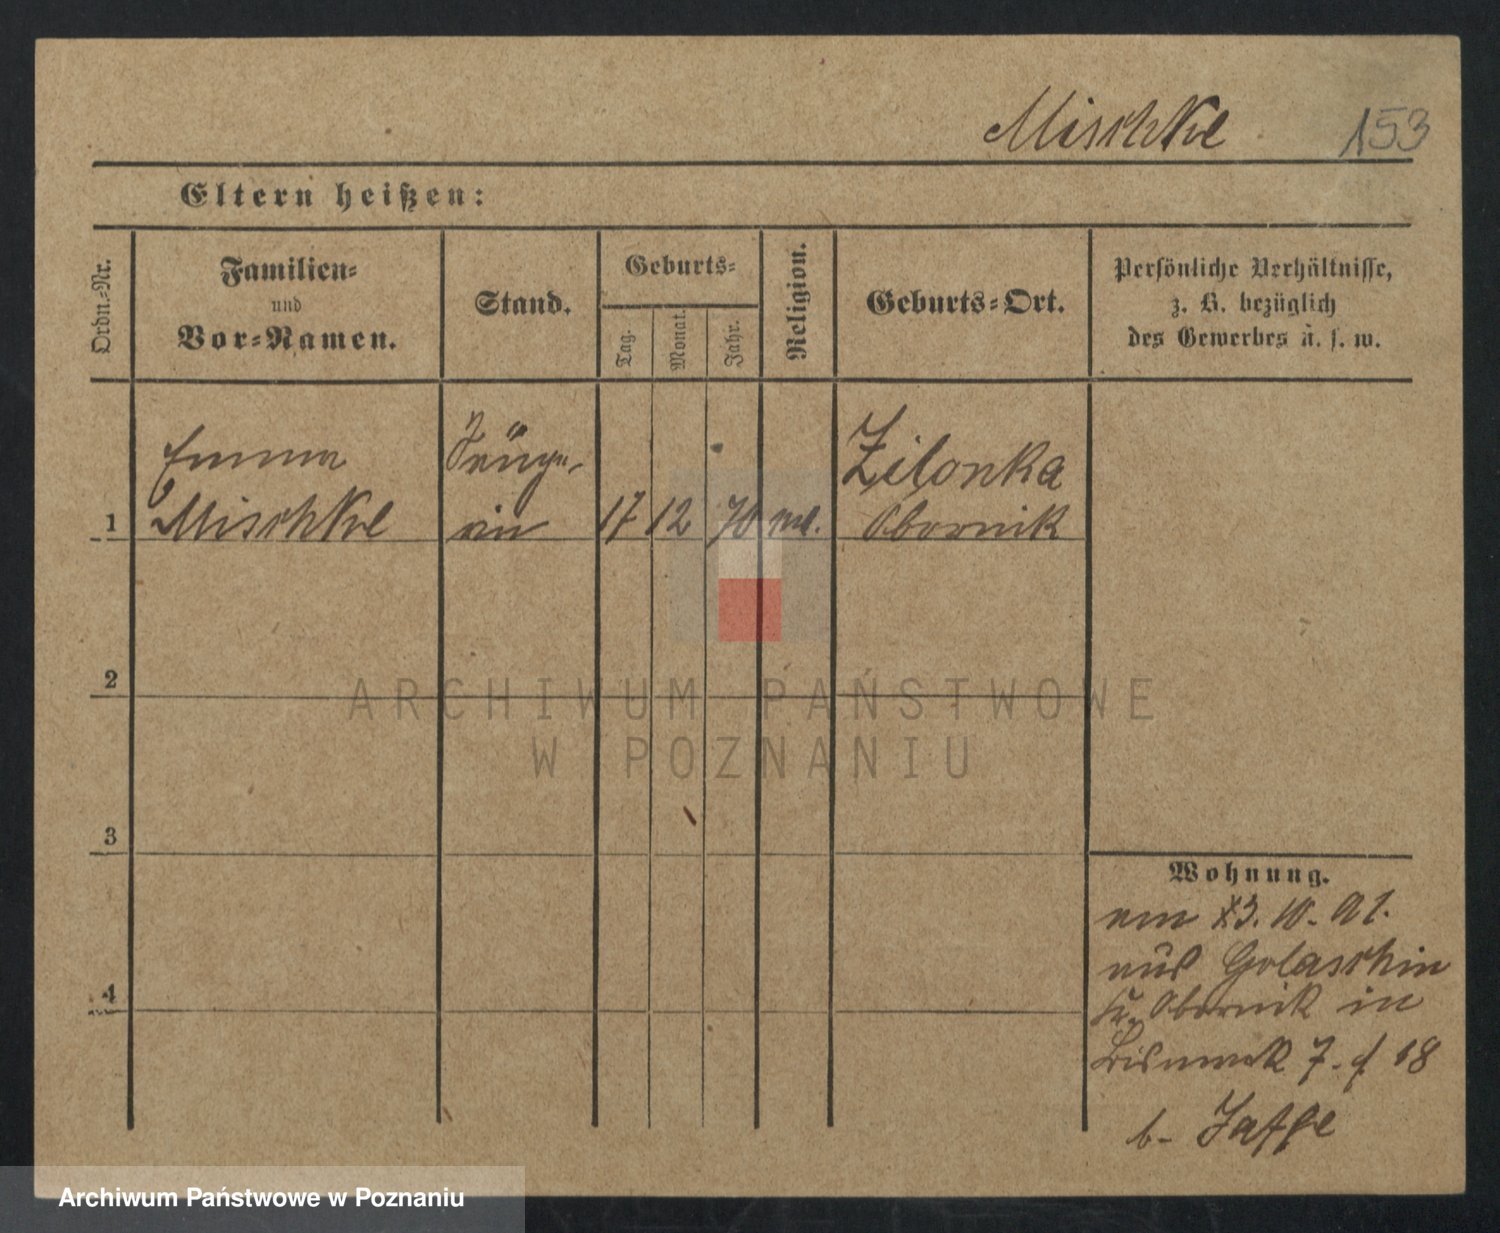 Mischke
153
Eltern heißen:
Ordn.-Nr.
Familien-
und
Vor-Namen.
Stand.
Geburts-
Tag.
Monat.
Jahr.
Religion.
Geburts-Ort.
Persönliche Verhältnisse,
z. B. bezüglich
des Gewerbes u. s. w.
Emma
Mischke
in
17 12 70
Zilonka
Obornik
1
2
3
4
Wohnung.
am 23. 10. 91.
aus Golaschin
Kr. Obornik in
Bismark 7.
18
b. Jaffe
ARCHIWUM PAŃSTWOWE
W POZNANIU
Archiwum Państwowe w Poznaniu